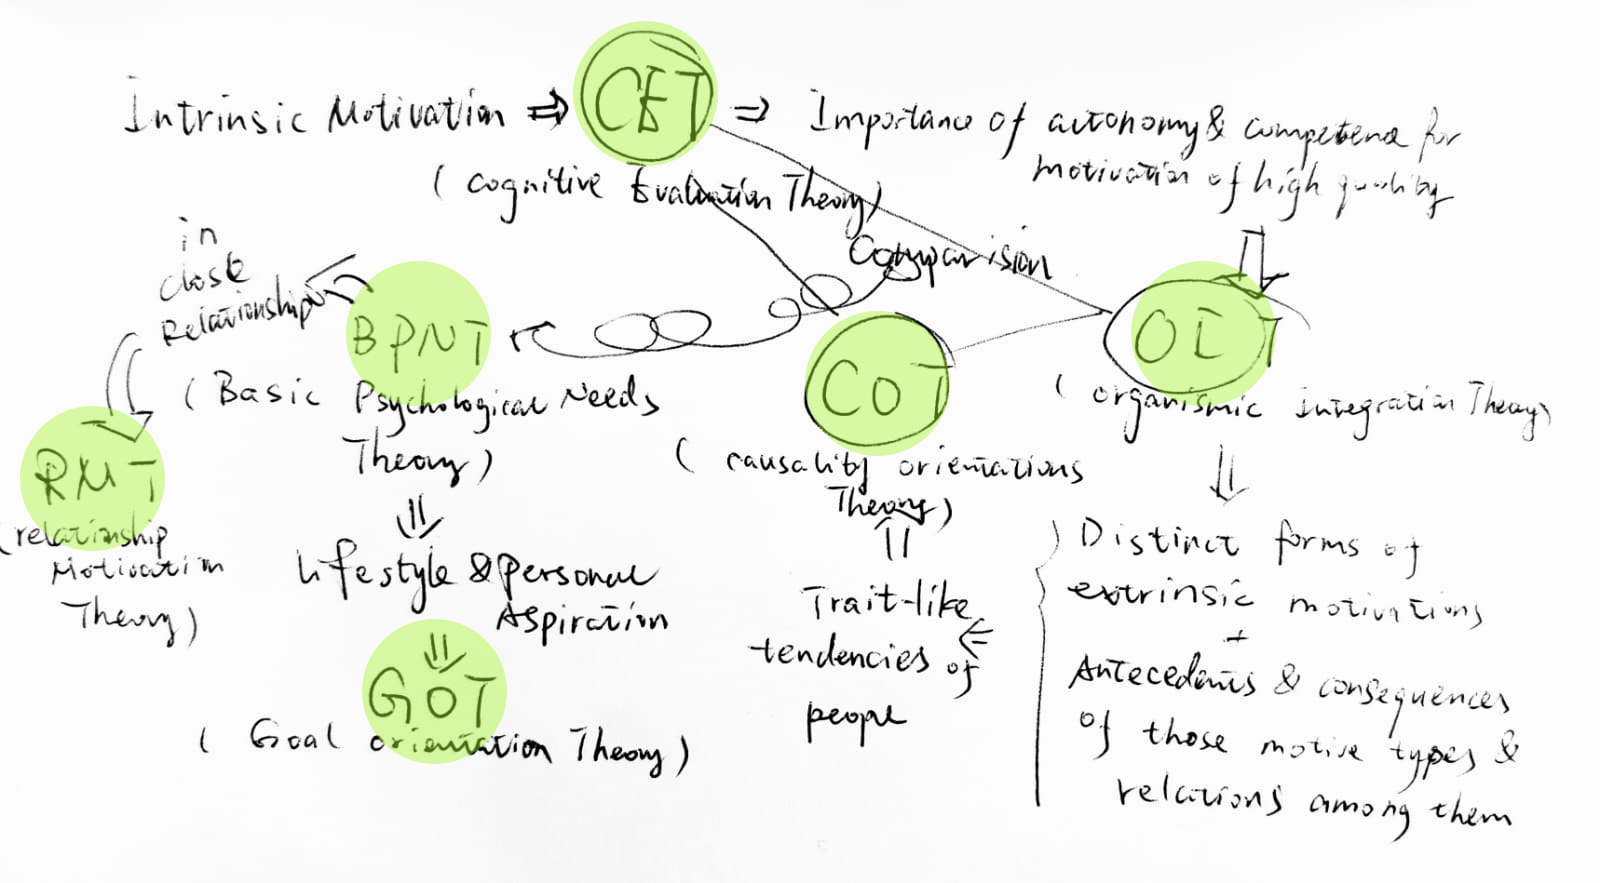 Intrinsic Motivation ⇒ CET ⇒ Importance of autonomy & competence for
motivation of high quality
(cognitive Evaluation Theory)
Comparision
in
close
Relationship
BPNT
(Basic Psychological Needs
Theory)
RMT
(relationship
Motivation
Theory)
Lifestyle & personal
Aspiration
GOT
(Goal orientation Theory)
COT
(causality orientations
Theory)
Trait-like
tendencies of
people
OIT
(organismic integration Theory)
Distinct forms of
extrinsic motivations
+
Antecedents & consequences
of those motive types &
relations among them